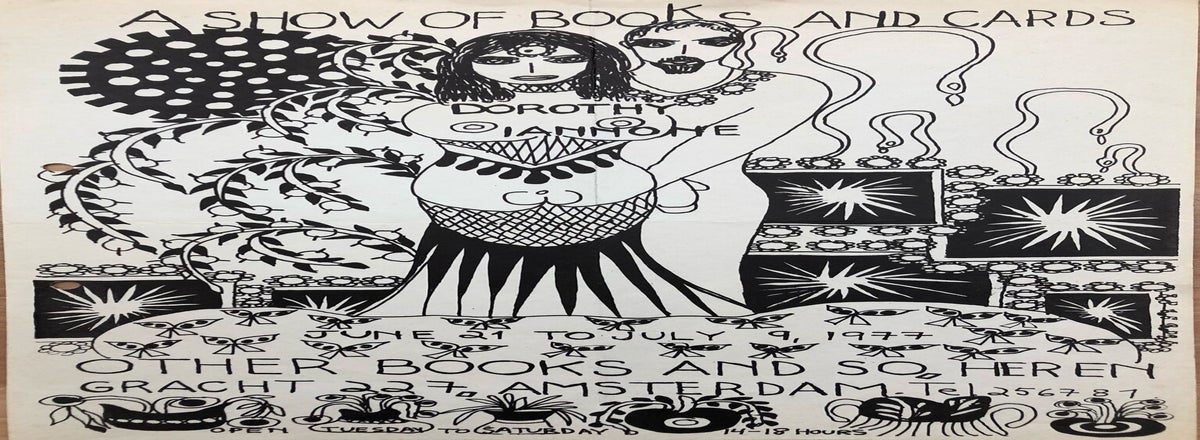 A SHOW OF BOOKS AND CARDS
DOROTHY
IANNONE
JUNE 21 TO JULY 9, 1977
OTHER BOOKS AND SO, HEREN
GRACHT 227, AMSTERDAM. Tel 256787
OPEN TUESDAY TO SATURDAY 14-18 HOURS